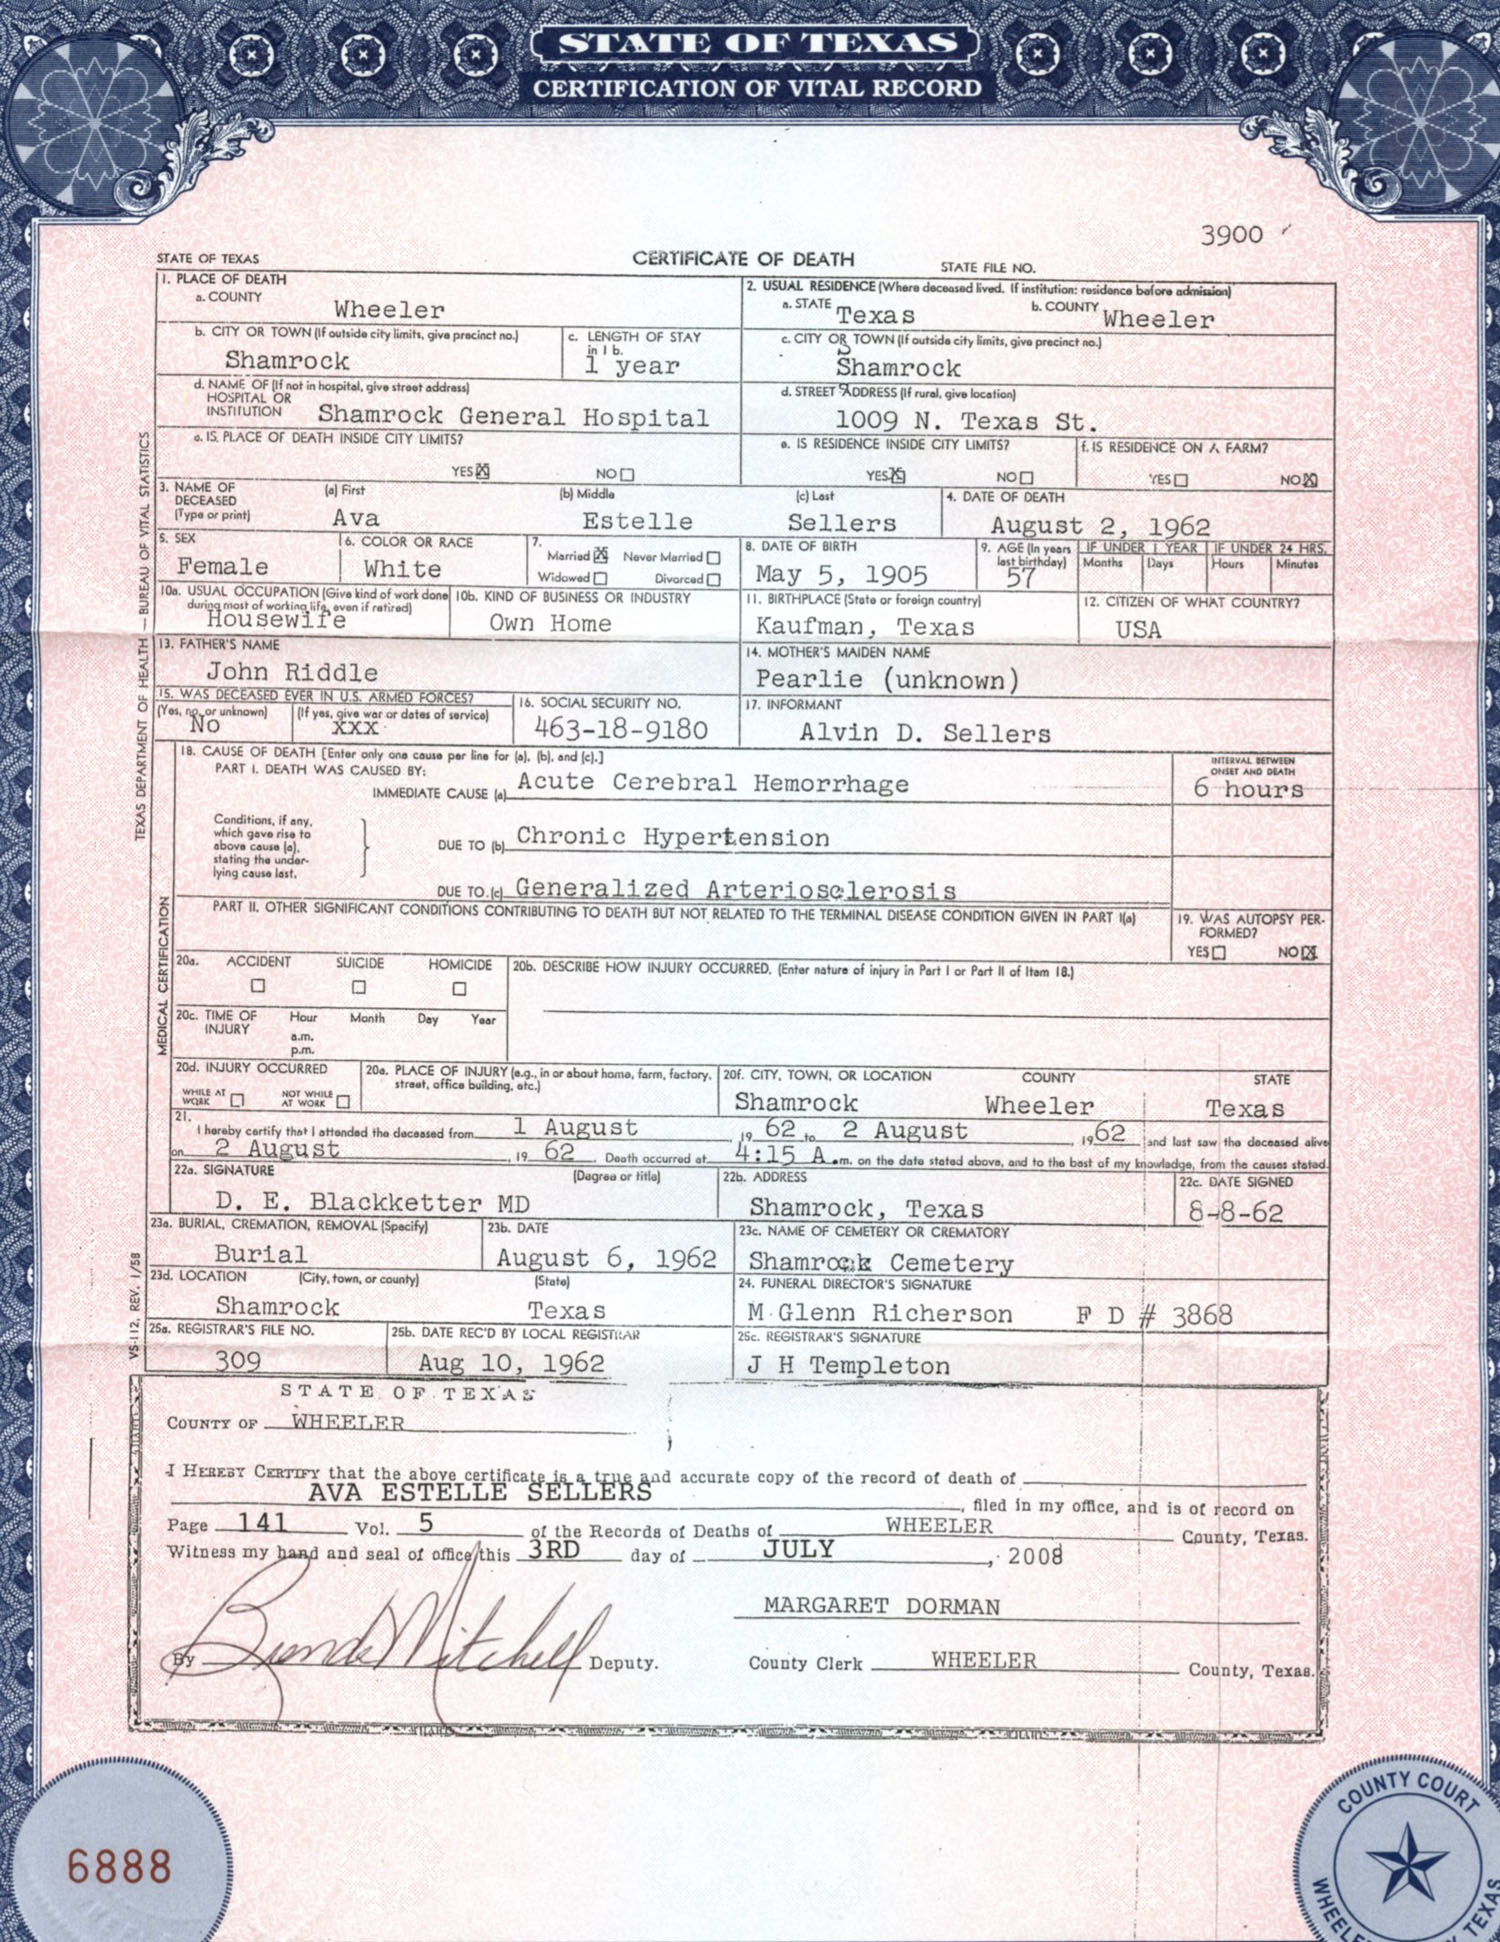 STATE OF TEXAS
CERTIFICATION OF VITAL RECORD
3900
STATE OF TEXAS CERTIFICATE OF DEATH STATE FILE NO.
1. PLACE OF DEATH
a. COUNTY Wheeler
2. USUAL RESIDENCE (Where deceased lived. If institution: residence before admission)
a. STATE Texas b. COUNTY Wheeler
b. CITY OR TOWN (If outside city limits, give precinct no.) Shamrock
c. LENGTH OF STAY in 1 b. 1 year
c. CITY OR TOWN (If outside city limits, give precinct no.) Shamrock
d. NAME OF (If not in hospital, give street address) HOSPITAL OR INSTITUTION Shamrock General Hospital
d. STREET ADDRESS (If rural, give location) 1009 N. Texas St.
e. IS PLACE OF DEATH INSIDE CITY LIMITS? YES ☒ NO ☐
e. IS RESIDENCE INSIDE CITY LIMITS? YES ☒ NO ☐
f. IS RESIDENCE ON A FARM? YES ☐ NO ☒
3. NAME OF DECEASED (Type or print) (a) First Ava (b) Middle Estelle (c) Last Sellers
4. DATE OF DEATH August 2, 1962
5. SEX Female
6. COLOR OR RACE White
7. Married ☒ Never Married ☐ Widowed ☐ Divorced ☐
8. DATE OF BIRTH May 5, 1905
9. AGE (In years last birthday) 57
IF UNDER 1 YEAR Months Days
IF UNDER 24 HRS. Hours Minutes
10a. USUAL OCCUPATION (Give kind of work done during most of working life, even if retired) Housewife
10b. KIND OF BUSINESS OR INDUSTRY Own Home
11. BIRTHPLACE (State or foreign country) Kaufman, Texas
12. CITIZEN OF WHAT COUNTRY? USA
13. FATHER'S NAME John Riddle
14. MOTHER'S MAIDEN NAME Pearlie (unknown)
15. WAS DECEASED EVER IN U.S. ARMED FORCES? (Yes, no, or unknown) No (If yes, give war or dates of service) xxx
16. SOCIAL SECURITY NO. 463-18-9180
17. INFORMANT Alvin D. Sellers
18. CAUSE OF DEATH [Enter only one cause per line for (a), (b), and (c).]
INTERVAL BETWEEN ONSET AND DEATH
PART I. DEATH WAS CAUSED BY:
IMMEDIATE CAUSE (a) Acute Cerebral Hemorrhage 6 hours
Conditions, if any, which gave rise to above cause (a), stating the underlying cause last.
DUE TO (b) Chronic Hypertension
DUE TO (c) Generalized Arteriosclerosis
PART II. OTHER SIGNIFICANT CONDITIONS CONTRIBUTING TO DEATH BUT NOT RELATED TO THE TERMINAL DISEASE CONDITION GIVEN IN PART I(a)
19. WAS AUTOPSY PERFORMED? YES ☐ NO ☒
20a. ACCIDENT ☐ SUICIDE ☐ HOMICIDE ☐
20b. DESCRIBE HOW INJURY OCCURRED. (Enter nature of injury in Part I or Part II of Item 18.)
20c. TIME OF INJURY Hour Month Day Year
a.m.
p.m.
20d. INJURY OCCURRED
WHILE AT WORK ☐ NOT WHILE AT WORK ☐
20e. PLACE OF INJURY (e.g., in or about home, farm, factory, street, office building, etc.)
20f. CITY, TOWN, OR LOCATION COUNTY STATE
Shamrock Wheeler Texas
21. I hereby certify that I attended the deceased from 1 August, 19 62 to 2 August, 19 62 and last saw the deceased alive
on 2 August, 19 62. Death occurred at 4:15 A.m. on the date stated above, and to the best of my knowledge, from the causes stated.
22a. SIGNATURE (Degree or title) D. E. Blackketter MD
22b. ADDRESS Shamrock, Texas
22c. DATE SIGNED 8-8-62
23a. BURIAL, CREMATION, REMOVAL (Specify) Burial
23b. DATE August 6, 1962
23c. NAME OF CEMETERY OR CREMATORY Shamrock Cemetery
23d. LOCATION (City, town, or county) (State) Shamrock Texas
24. FUNERAL DIRECTOR'S SIGNATURE M Glenn Richerson F D # 3868
25a. REGISTRAR'S FILE NO. 309
25b. DATE REC'D BY LOCAL REGISTRAR Aug 10, 1962
25c. REGISTRAR'S SIGNATURE J H Templeton
TEXAS DEPARTMENT OF HEALTH — BUREAU OF VITAL STATISTICS
MEDICAL CERTIFICATION
VS-112, REV. 1/58
STATE OF TEXAS
COUNTY OF WHEELER
I HEREBY CERTIFY that the above certificate is a true and accurate copy of the record of death of
AVA ESTELLE SELLERS, filed in my office, and is of record on
Page 141 Vol. 5 of the Records of Deaths of WHEELER County, Texas.
Witness my hand and seal of office this 3RD day of JULY, 2008
MARGARET DORMAN
By Brenda Mitchell Deputy. County Clerk WHEELER County, Texas.
6888
COUNTY COURT
WHEELER
TEXAS